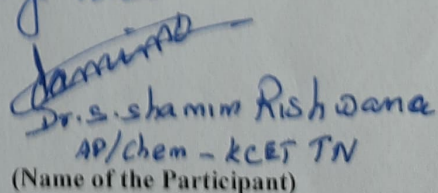 Dr. S. Shamim Rishwana
AP/Chem - KCET TN
(Name of the Participant)